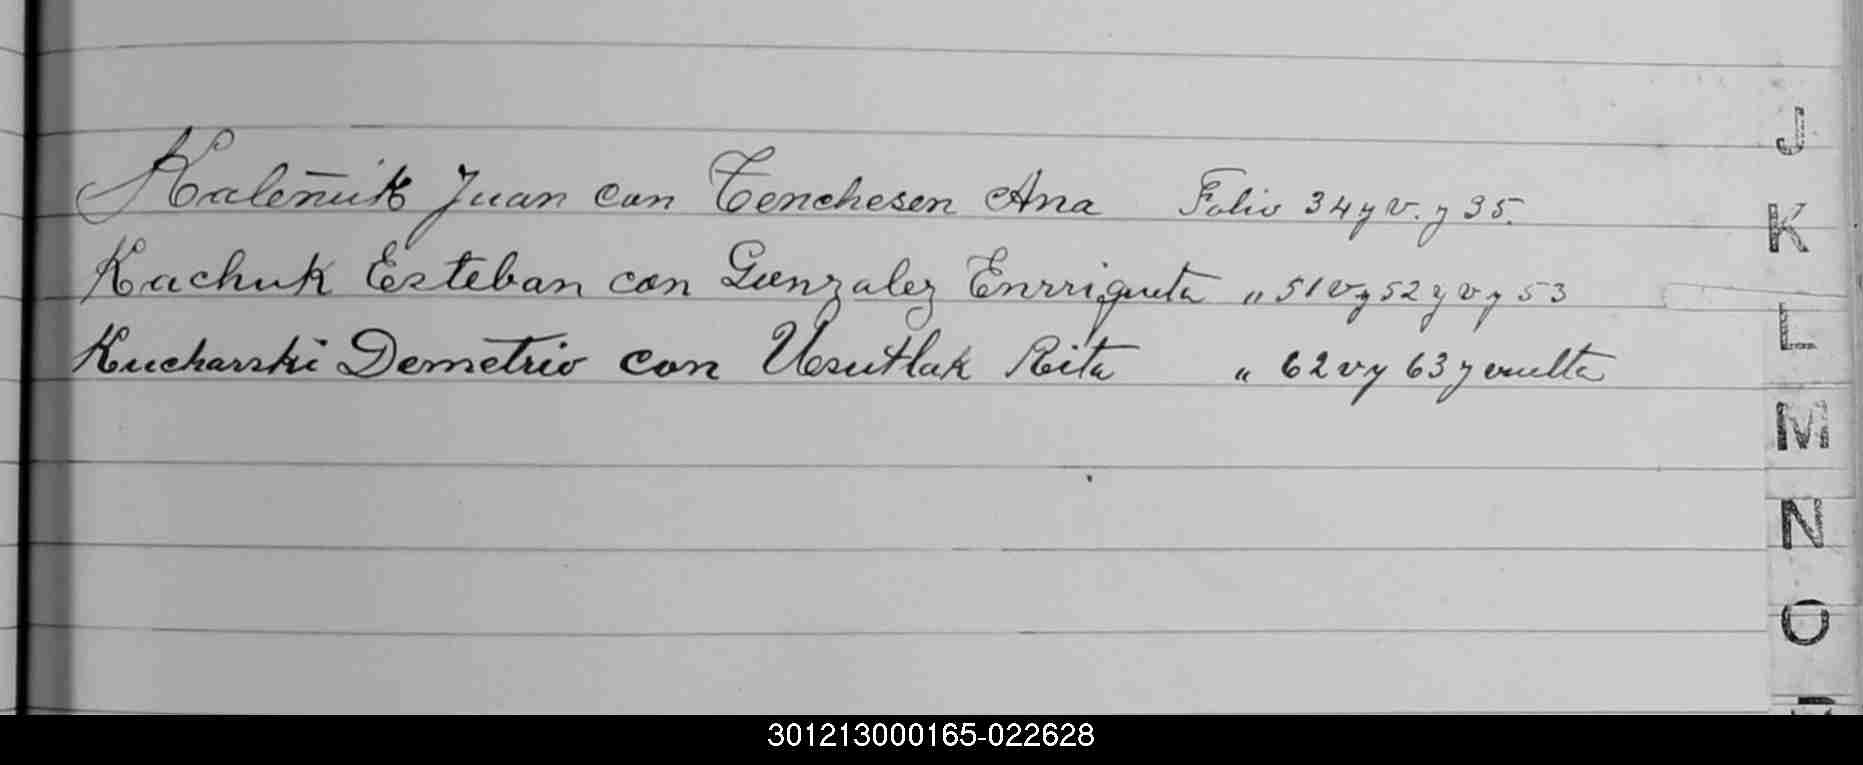 Kaleñuik Juan con Tenchesen Ana Folio 34 y v. y 35.
Kachuk Esteban con Gonzalez Enrriqueta " 51 v y 52 y v y 53
Kucharski Demetrio con Rita " 62 v y 63 y vuelta
J
K
L
M
N
O
301213000165-022628